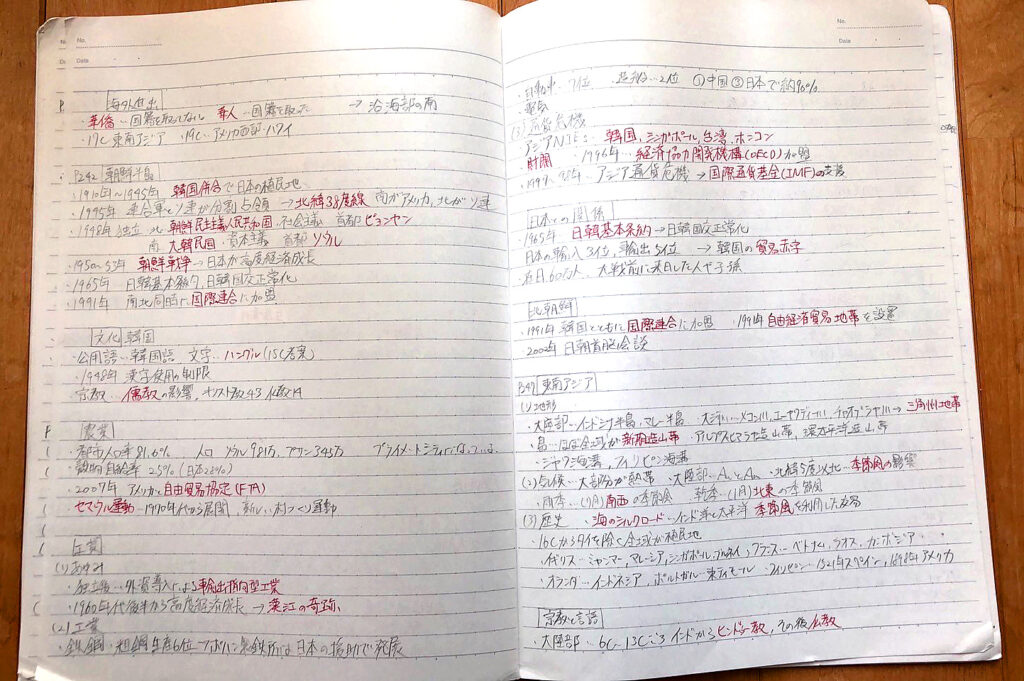 No.
Date
海外進出
・華僑…国籍を取ってない 華人…国籍を取った → 沿海部の南
・17C 東南アジア 19C…アメリカ西部・ハワイ
P242 朝鮮半島
・1910年〜1945年 韓国併合で日本の植民地
・1945年 連合軍とソ連が分割占領 → 北緯38度線 南がアメリカ, 北がソ連
・1948年独立 北 朝鮮民主主義人民共和国・社会主義 首都 ピョンヤン
南 大韓民国・資本主義 首都 ソウル
・1950〜53年 朝鮮戦争→日本が高度経済成長
・1965年 日韓基本条約, 日韓国交正常化
・1991年 南北同時に国際連合に加盟
文化 韓国
・公用語…韓国語 文字…ハングル(15C考案)
・1948年 漢字使用の制限
・宗教…儒教の影響, キリスト教43 仏教14
農業
・都市人口率81.6% 人口 ソウル981万, プサン345万 プライメートシティになっている.
・穀物自給率 25%(日本28%)
・2007年 アメリカと自由貿易協定(FTA)
セマウル運動…1970年代から展開, 新しい村づくり運動
工業
(1)あゆみ
・独立後…外資導入による輸出指向型工業
・1960年代後半から高度経済成長→漢江の奇跡
(2)工業
・鉄鋼…粗鋼生産6位→ポハン製鉄所は日本の援助で発展
No.
Date
・自動車…7位 造船…2位 ①中国②日本で約90%
・電気
(3)通貨危機
アジアNIEs…韓国, シンガポール, 台湾, ホンコン
・財閥 1996年…経済協力開発機構(OECD)加盟
・1997, 98年…アジア通貨危機→国際通貨基金(IMF)の支援
日本との関係
・1965年 日韓基本条約→日韓国交正常化
日本の輸入3位, 輸出5位 → 韓国の貿易赤字
・在日60万人 大戦前に来日した人や子孫
北朝鮮
・1991年 韓国とともに国際連合に加盟 ・1991年自由経済貿易地帯を設置
2002年 日朝首脳会談
P247 東南アジア
(1)地形
・大陸部…インドシナ半島, マレー半島 大河…メコン川, エーヤワディー川, チャオプラヤ川→三角州地帯
・島…ほぼ全域が新期造山帯 アルプスヒマラヤ造山帯, 環太平洋造山帯
・ジャワ海溝, フィリピン海溝
(2)気候…大部分が熱帯 大陸部…AwとAm ・北緯5度以北…季節風の影響
・雨季…(7月)南西の季節風 乾季…(1月)北東の季節風
(3)歴史 ・海のシルクロード…インド洋と太平洋 季節風を利用した交易
・16Cからタイを除く全域が植民地
・イギリス…ミャンマー, マレーシア, シンガポール, ブルネイ, フランス…ベトナム, ラオス, カンボジア・
・オランダ…インドネシア, ポルトガル…東ティモール フィリピン…1521年スペイン, 1898年アメリカ
宗教と言語
・大陸部…6C〜13Cごろ インドからヒンドゥー教, その後仏教